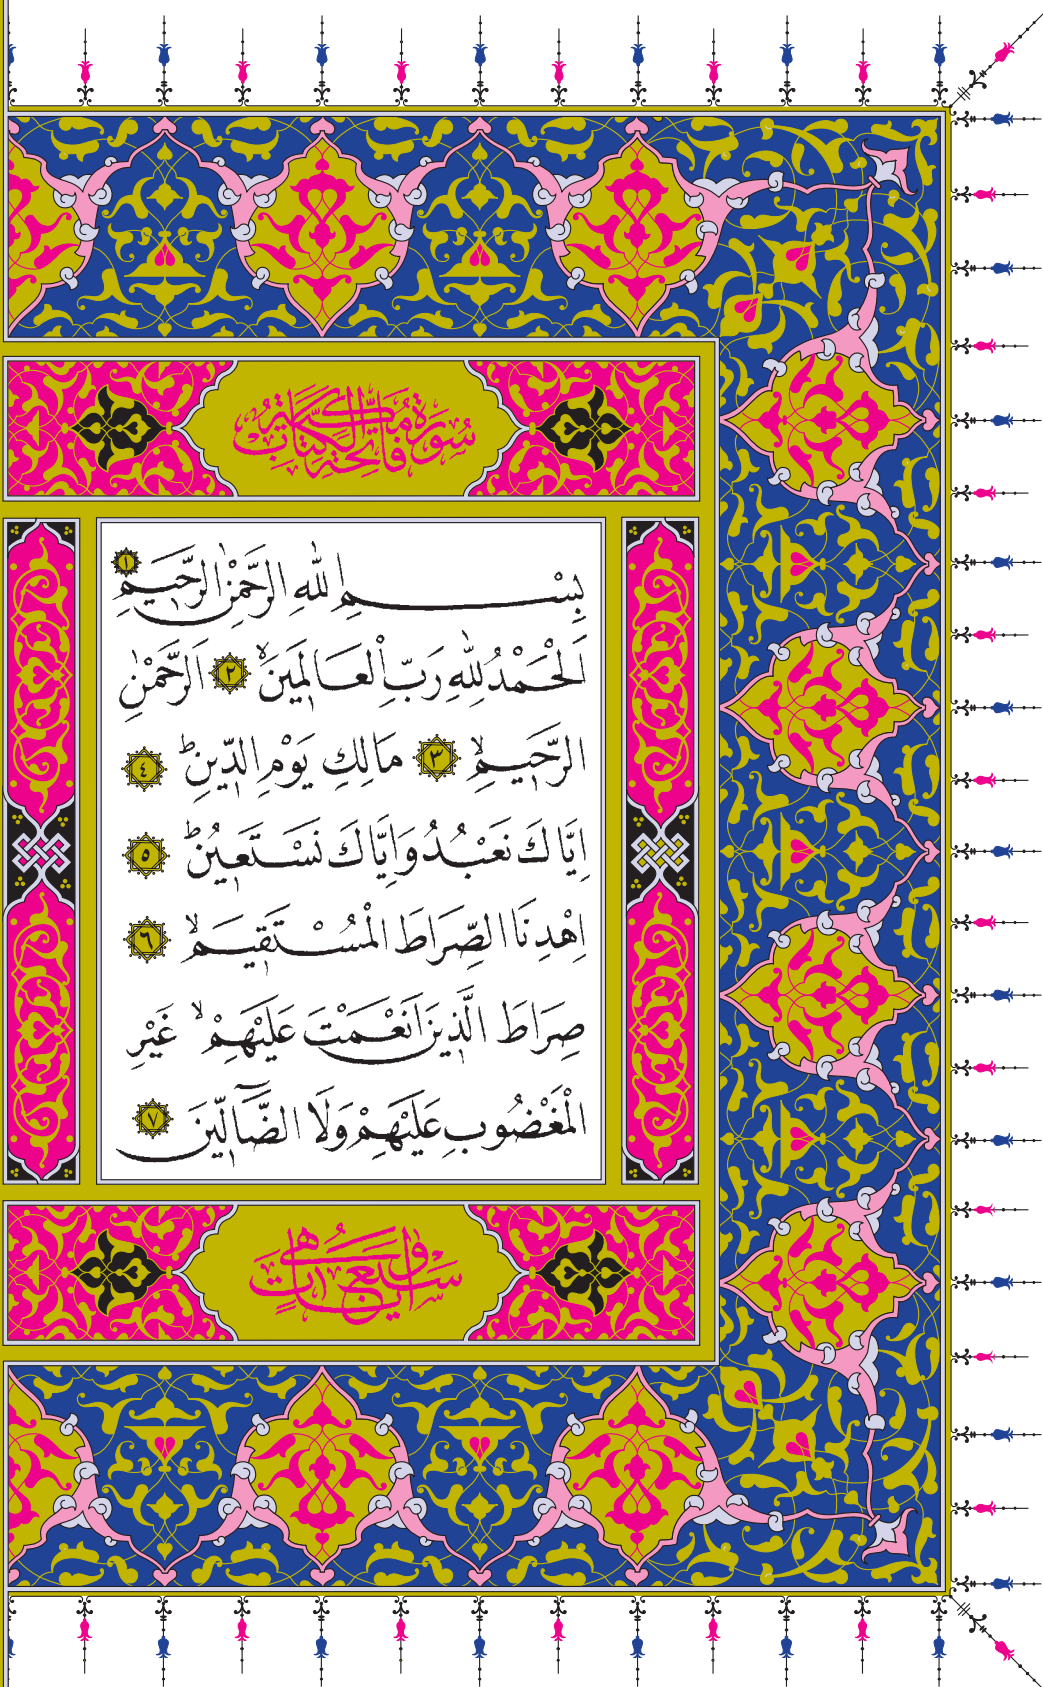 سُورَةُ فَاتِحَةِ الْكِتَابِ مَكِّيَّةٌ
بِسْمِ اللّٰهِ الرَّحْمٰنِ الرَّحٖيمِ ١
اَلْحَمْدُ لِلّٰهِ رَبِّ الْعَالَمٖينَۙ ٢ اَلرَّحْمٰنِ
الرَّحٖيمِۙ ٣ مَالِكِ يَوْمِ الدّٖينِؕ ٤
اِيَّاكَ نَعْبُدُ وَاِيَّاكَ نَسْتَعٖينُؕ ٥
اِهْدِنَا الصِّرَاطَ الْمُسْتَقٖيمَۙ ٦
صِرَاطَ الَّذٖينَ اَنْعَمْتَ عَلَيْهِمْۙ غَيْرِ
الْمَغْضُوبِ عَلَيْهِمْ وَلَا الضَّٓالّٖينَ ٧
وَهِيَ سَبْعُ اٰيَاتٍ